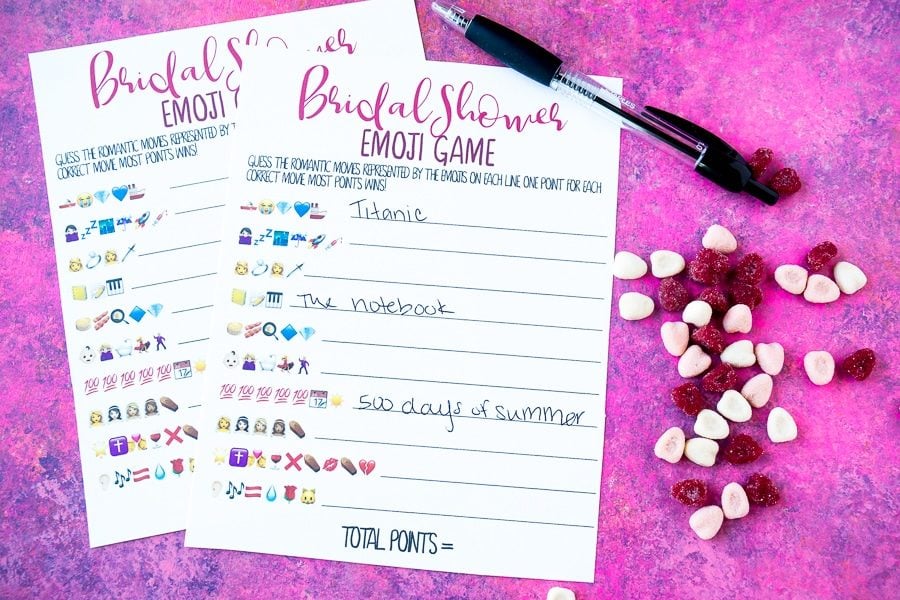 Bridal Shower
EMOJI G
GUESS THE ROMANTIC MOVIES REPRESENTED BY T
CORRECT MOVIE MOST POINTS WINS!
Bridal Shower
EMOJI GAME
GUESS THE ROMANTIC MOVIES REPRESENTED BY THE EMOJIS ON EACH LINE ONE POINT FOR EACH
CORRECT MOVIE MOST POINTS WINS!
Titanic
The notebook
500 days of summer
TOTAL POINTS =